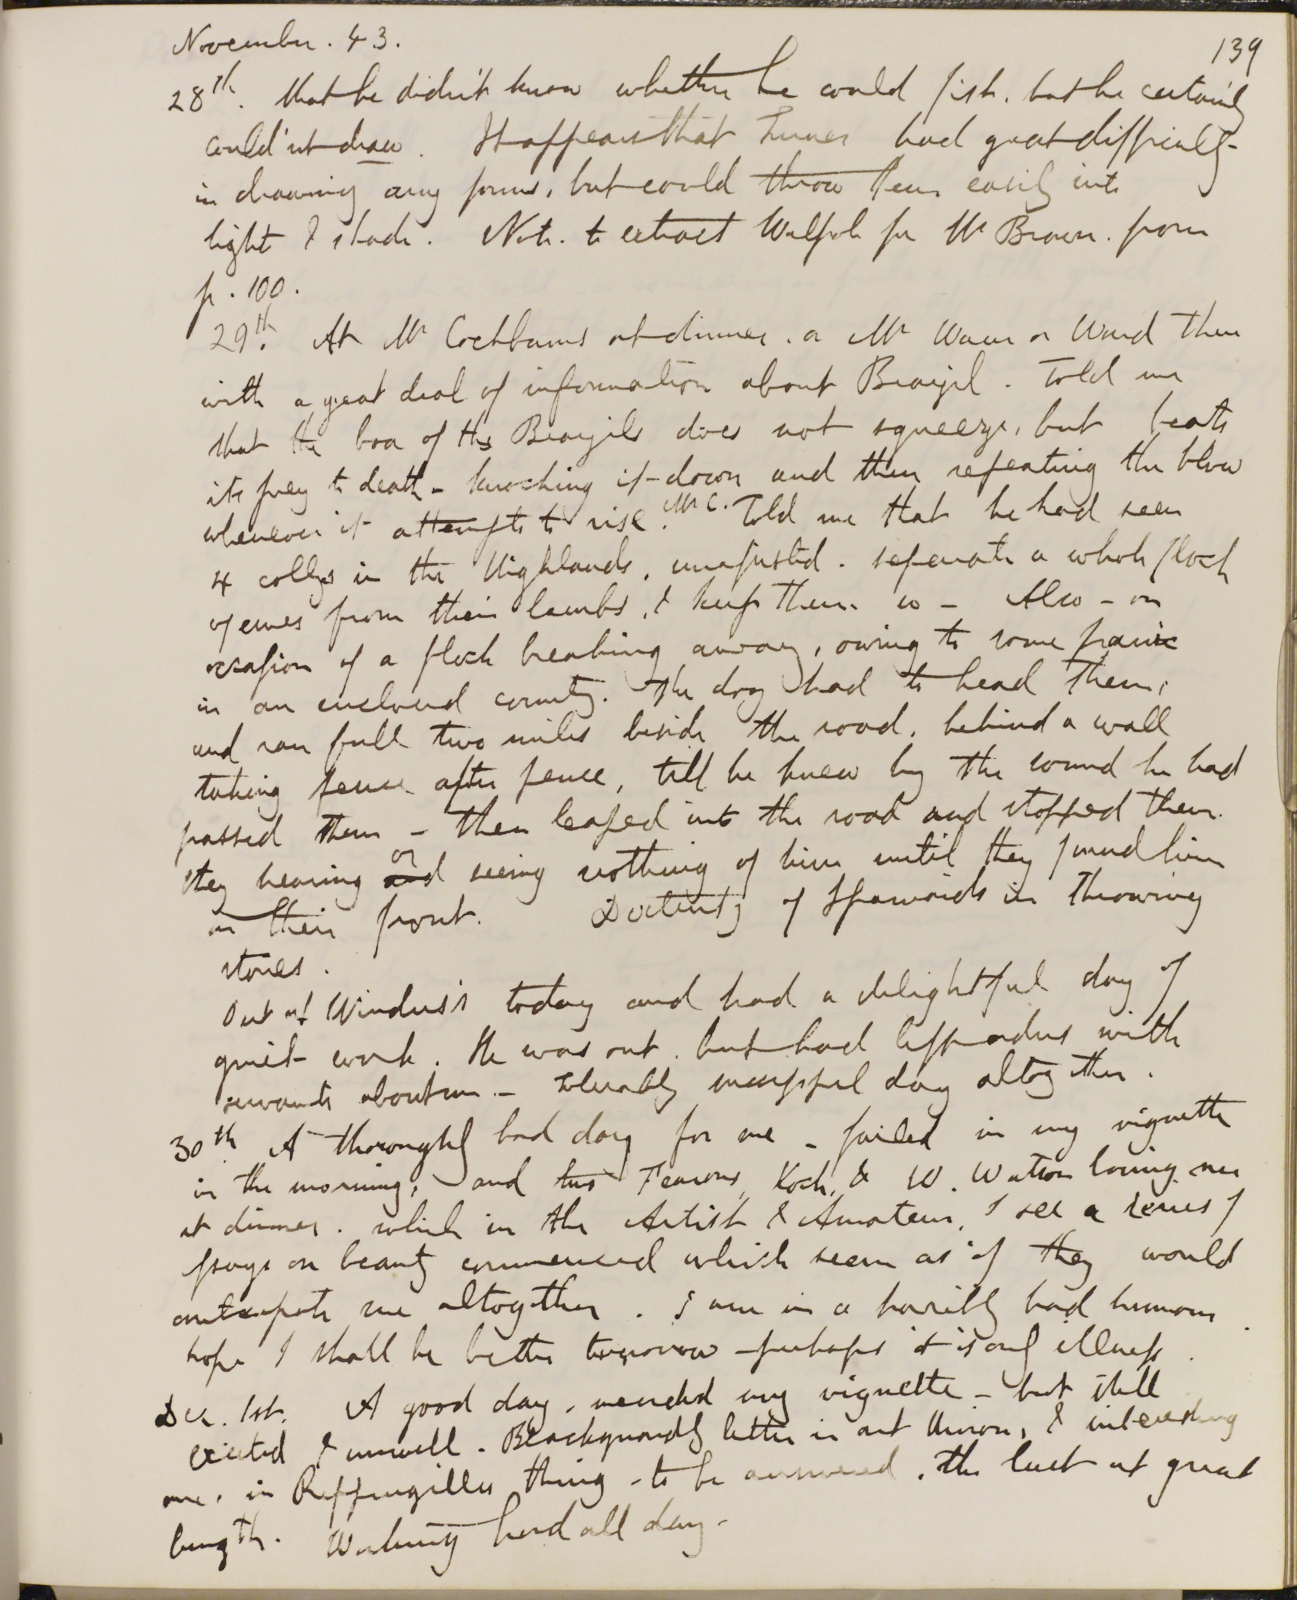 November. 43.
139
28th. that he didn't know whether he could fish, but he certainly
could'nt draw. It appears that Turner had great difficulty
in drawing any forms, but could throw them easily into
light & shade. Note. to extract Walpole for Mr Brown. from
p. 100.
29th. At Mr Cockburns at dinner. a Mr or Ward there
with a great deal of information about Brazil. Told me
that the boa of the Brazils does not squeeze, but beats
its prey to death - knocking it down and then repeating the blow
whenever it attempts to rise. Mr C. Told me that he had seen
4 collys in the Highlands, unassisted. separate a whole flock
of ewes from their lambs, & keep them so - Also - on
occasion of a flock breaking away, owing to some panic
in an enclosed country. The dog had to head them,
and ran full two miles beside the road, behind a wall
taking fence after fence, till he knew by the sound he had
passed them - then leaped into the road and stopped them.
they hearing and or seeing nothing of him until they found him
in their front. Dexterity of Spaniards in throwing
stones.
Out at Windus's today and had a delightful day of
quiet work. He was out. but had left orders with
servants about me - tolerably successful day altogether.
30th A thoroughly bad day for me - failed in my vignette
in the morning, and two Fearons, Koch, & W. Watson me
at dinner. while in the Artist & Amateur, I see a series of
essays on beauty commenced which seem as if they would
anticipate me altogether. I am in a horribly bad humour.
hope I shall be better tomorrow - perhaps it is only illness.
Dec. 1st. A good day, mended my vignette - but still
excited & unwell. Blackguardly letter in art Union, & interesting
one, in Rippingilles thing - to be answered, the last at great
length. Working hard all day -